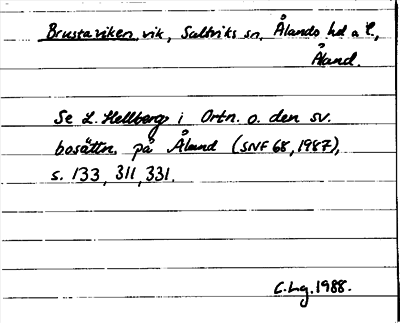 Brustaviken, vik, Saltviks sn, Ålands hd a l.,
Åland.
Se L. Hellberg i Ortn. o. den sv.
bosättn. på Åland (SNF 68, 1987),
s. 133, 311, 331.
C.Lg. 1988.